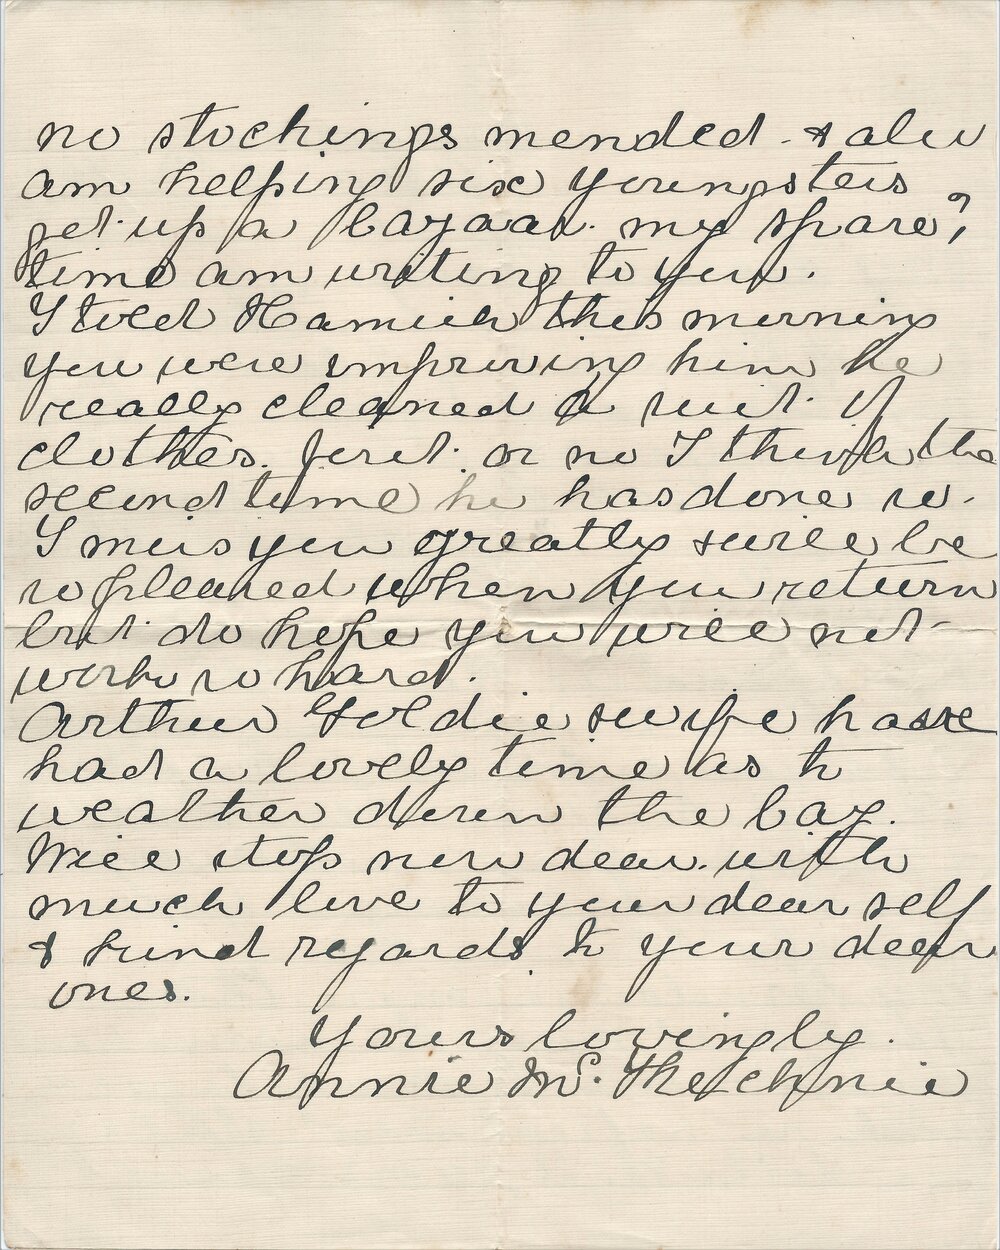 no stockings mended - & also
am helping six youngsters
get up a bazaar. my spare?
time am writing to you.
I told Hamish this morning
you were improving him he
really cleaned a suit of
clothes. first or no I think the
second time he has done so.
I miss you greatly & will be
so pleased when you return
but do hope you will not
work so hard.
Arthur Goldie & wife have
had a lovely time as to
weather down the bay.
Will stop now dear. with
much love to your dear self
& kind regards to your dear
ones.
Yours lovingly.
Annie Mc.